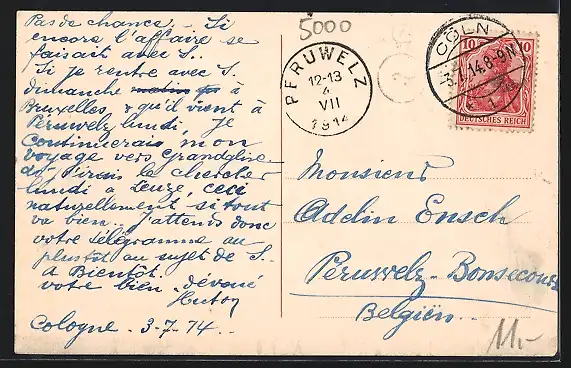 Pas de chance. - Si
encore l'affaire se
faisait avec S..
Si je rentre avec S.
dimanche à
Bruxelles & qu'il vient à
Péruwelz lundi, je
continuerais mon
voyage vers Grandglise.
où j'irais le chercher
lundi à Leuze, ceci
naturellement si tout
va bien.. J'attends donc
votre télégramme au
plustôt au sujet de S..
A Bientôt.
votre bien dévoué
Cologne. 3-7-14..
5000
PERUWELZ
12-13
4
VII
1914
CÖLN
3.7.14.8-9N
1
10 10
DEUTSCHES REICH
Monsieur
Adelin Ensch
Péruwelz-Bonsecours
Belgiën..
11,-